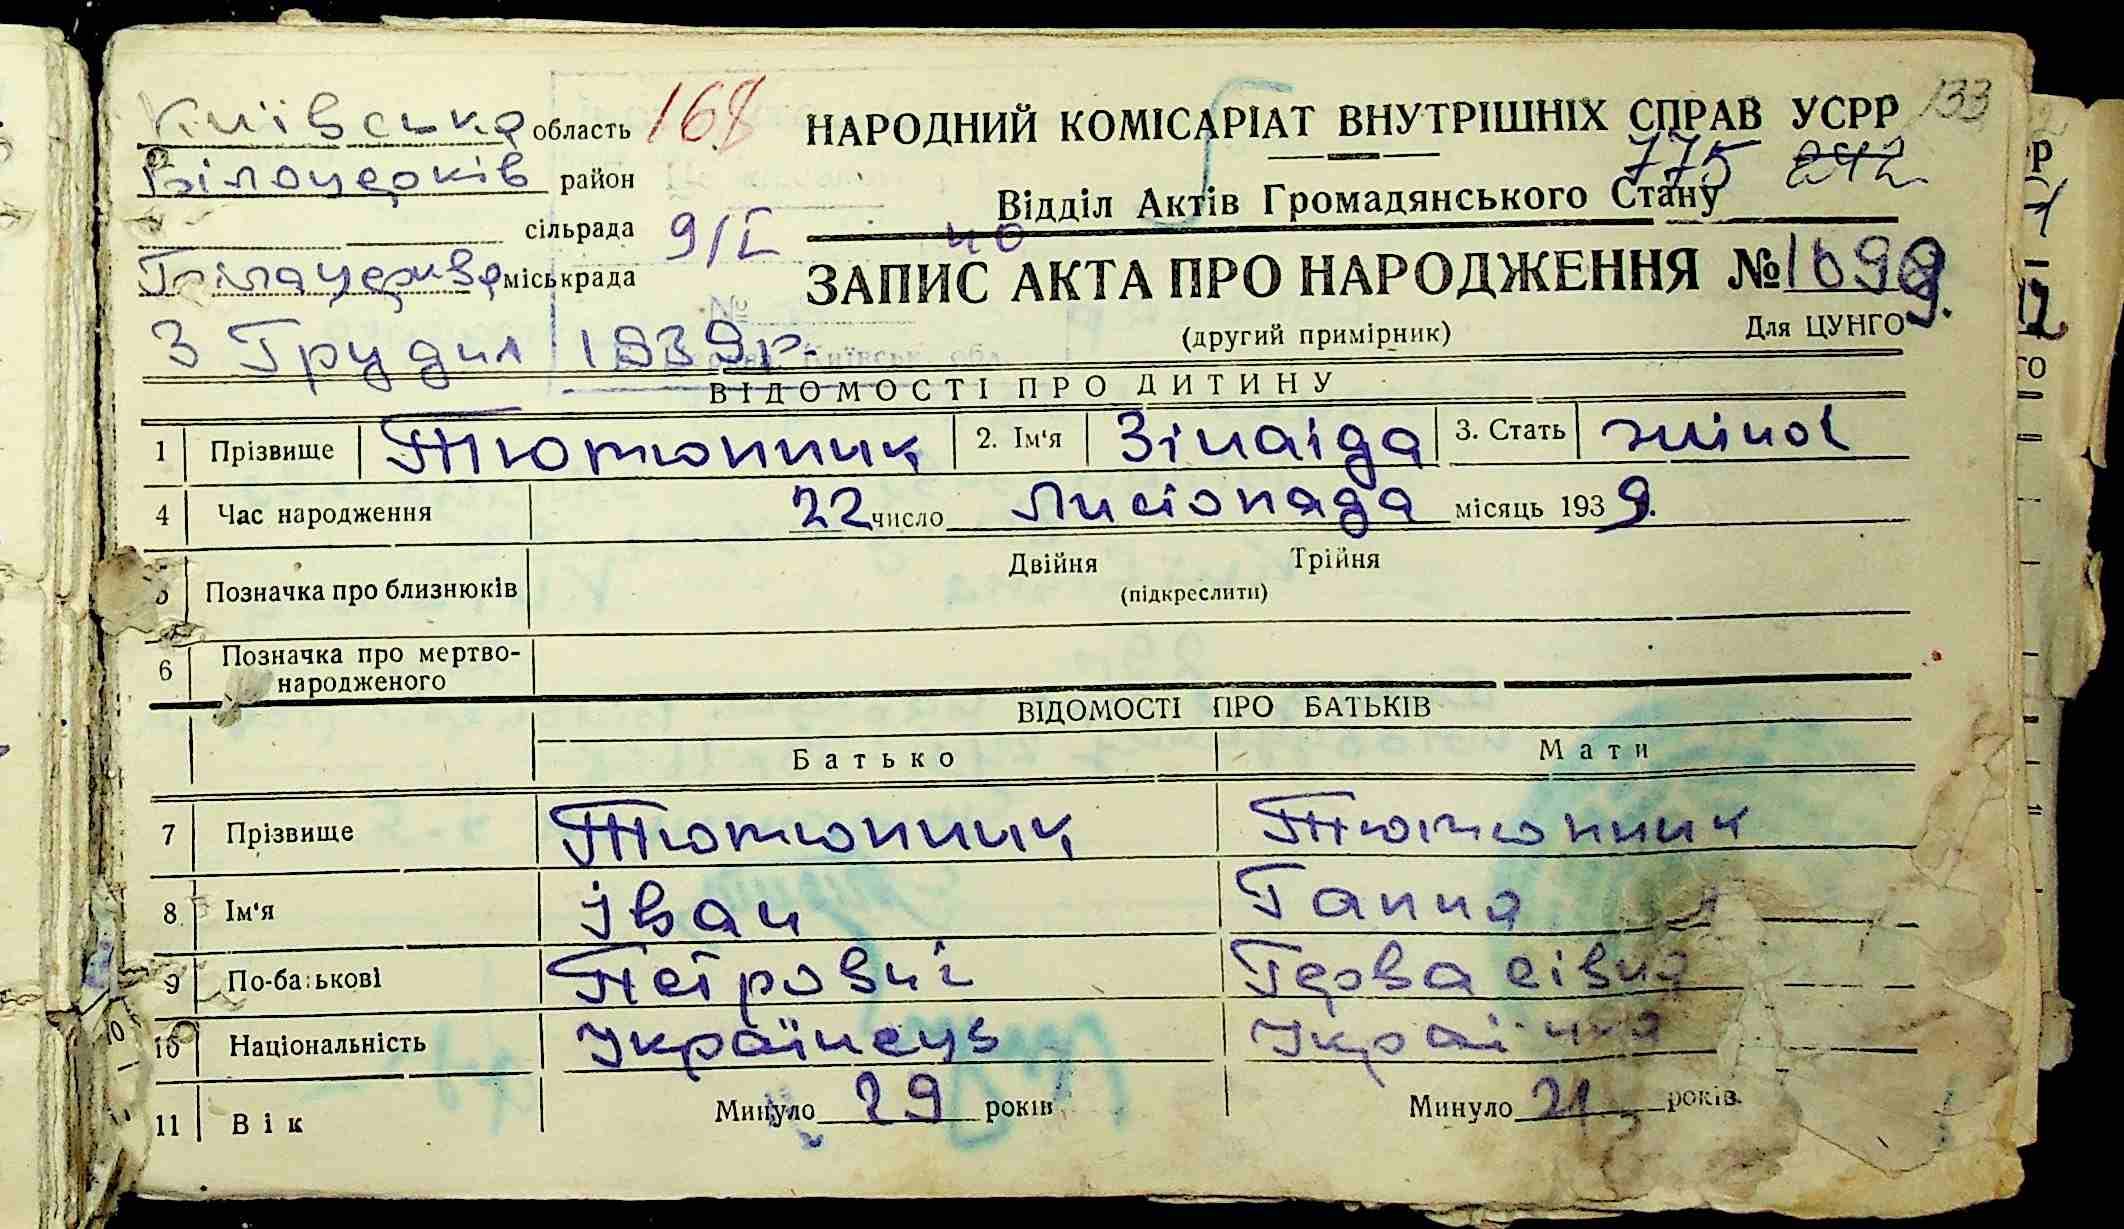 Київська область 168 НАРОДНИЙ КОМІСАРІАТ ВНУТРІШНІХ СПРАВ УСРР 133
Білоцерків район 775 242
Відділ Актів Громадянського Стану
сільрада 9/I 40
Білацеркво міськрада ЗАПИС АКТА ПРО НАРОДЖЕННЯ № 1099.
(другий примірник) Для ЦУНГО
3 Грудня 1939р.
ВІДОМОСТІ ПРО ДИТИНУ
1 Прізвище Тютюнник 2. Ім'я Зінаіда 3. Стать жіноч
4 Час народження 22 число Листопада місяць 1939.
5 Позначка про близнюків Двійня Трійня
(підкреслити)
6 Позначка про мертво-
народженого
ВІДОМОСТІ ПРО БАТЬКІВ
Батько Мати
7 Прізвище Тютюнник Тютюнник
8 Ім'я Іван Ганна
9 По-батькові Петрович Гервасівна
10 Національність Українець Українка
11 Вік Минуло 29 років Минуло 21 років